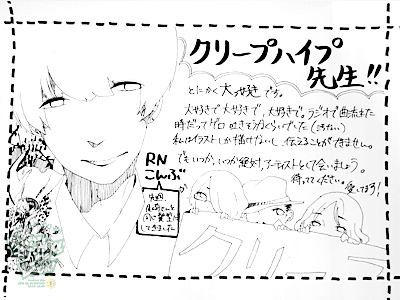 クリープハイプ
先生!!
とにかく大好きです。
大好きで大好きで、大好きで。ラジオで曲流れた
時だってゲロ吐きそうなくらいでした(汚ない)
私はイラストしか描けないし、伝えることができません。
でもいつか、いつか絶対、アーティストとして会いましょう。
待っててください。愛してます!
RN
こんぶ
先生、
尾崎さんと
同じ髪型に
してきました
クリープ